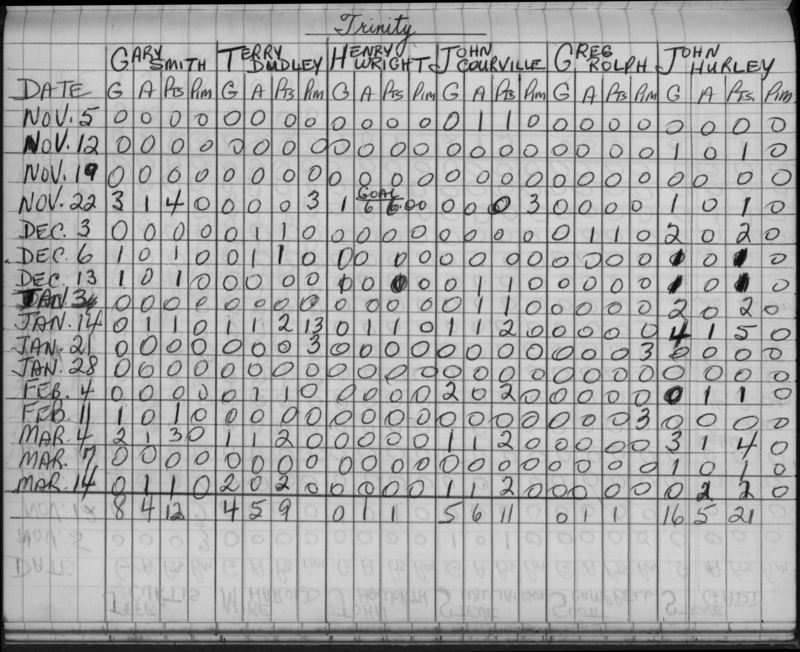 Trinity
GARY SMITH TERRY DUDLEY HENRY WRIGHT JOHN COURVILLE GREG ROLPH JOHN HURLEY
DATE G A Pts Pim G A Pts Pim G A Pts Pim G A Pts Pim G A Pts Pim G A Pts. Pim
NOV. 5 0 0 0 0 0 0 0 0 0 0 0 0 0 1 1 0 0 0 0 0 0 0 0 0
NOV. 12 0 0 0 0 0 0 0 0 0 0 0 0 0 0 0 0 0 0 0 0 1 0 1 0
NOV. 19 0 0 0 0 0 0 0 0 0 0 0 0 0 0 0 0 0 0 0 0 0 0 0 0
NOV. 22 3 1 4 0 0 0 0 3 1 GOAL 6 6.00 0 0 0 3 0 0 0 0 1 0 1 0
DEC. 3 0 0 0 0 0 1 1 0 0 0 0 0 0 0 0 0 0 1 1 0 2 0 2 0
DEC. 6 1 0 1 0 0 1 1 0 0 0 0 0 0 0 0 0 0 0 0 0 1 0 1 0
DEC. 13 1 0 1 0 0 0 0 0 0 0 0 0 0 1 1 0 0 0 0 0 1 0 1 0
JAN. 3 0 0 0 0 0 0 0 0 0 0 0 0 0 1 1 0 0 0 0 0 2 0 2 0
JAN. 14 0 1 1 0 1 1 2 13 0 1 1 0 1 1 2 0 0 0 0 0 4 1 5 0
JAN. 21 0 0 0 0 0 0 0 3 0 0 0 0 0 0 0 0 0 0 0 3 0 0 0 0
JAN. 28 0 0 0 0 0 0 0 0 0 0 0 0 0 0 0 0 0 0 0 0 0 0 0 0
FEB. 4 0 0 0 0 0 1 1 0 0 0 0 0 2 0 2 0 0 0 0 0 0 1 1 0
FEB. 11 1 0 1 0 0 0 0 0 0 0 0 0 0 0 0 0 0 0 0 3 0 0 0 0
MAR. 4 2 1 3 0 1 1 2 0 0 0 0 0 1 1 2 0 0 0 0 0 3 1 4 0
MAR. 7 0 0 0 0 0 0 0 0 0 0 0 0 0 0 0 0 0 0 0 0 1 0 1 0
MAR. 14 0 1 1 0 2 0 2 0 0 0 0 0 1 1 2 0 0 0 0 0 0 2 2 0
8 4 12 4 5 9 0 1 1 5 6 11 0 1 1 16 5 21